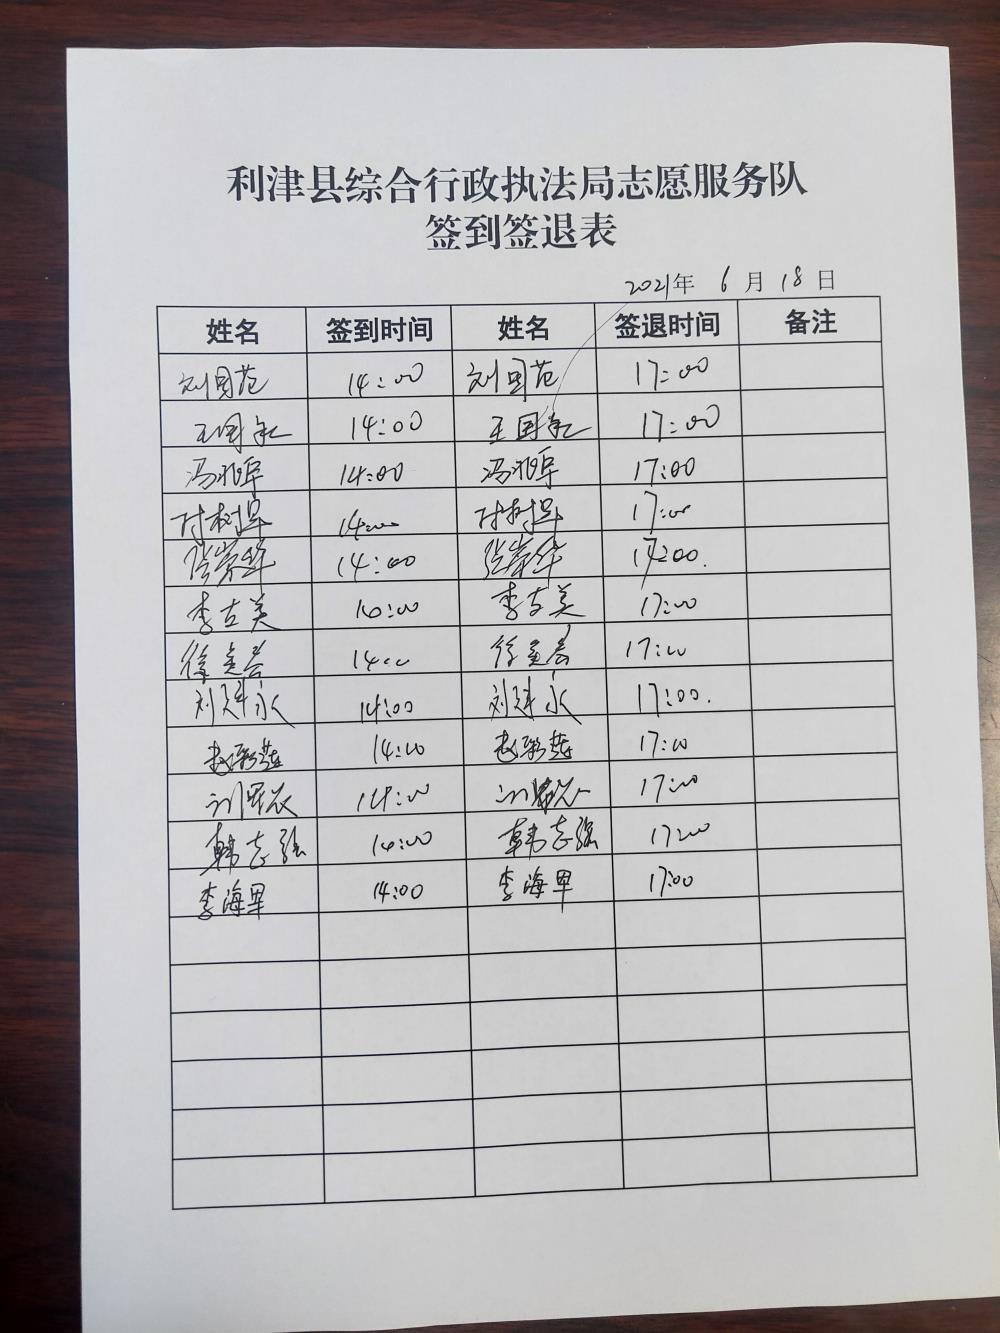 利津县综合行政执法局志愿服务队
签到签退表
2021年 6月 18日
姓名 签到时间 姓名 签退时间 备注
刘国范 14:00 刘国范 17:00
王国 14:00 王国 17:00
冯 14:00 冯 17:00
付树 14:00 付树 17:00
张 14:00 张 17:00
李吉美 14:00 李吉美 17:00
徐 14:00 徐 17:00
刘 永 14:00 刘 永 17:00
赵 14:00 赵 17:00
刘 14:00 刘 17:00
韩志强 14:00 韩志强 17:00
李海 14:00 李海 17:00